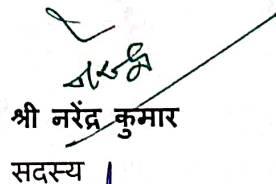 श्री नरेंद्र कुमार
सदस्य